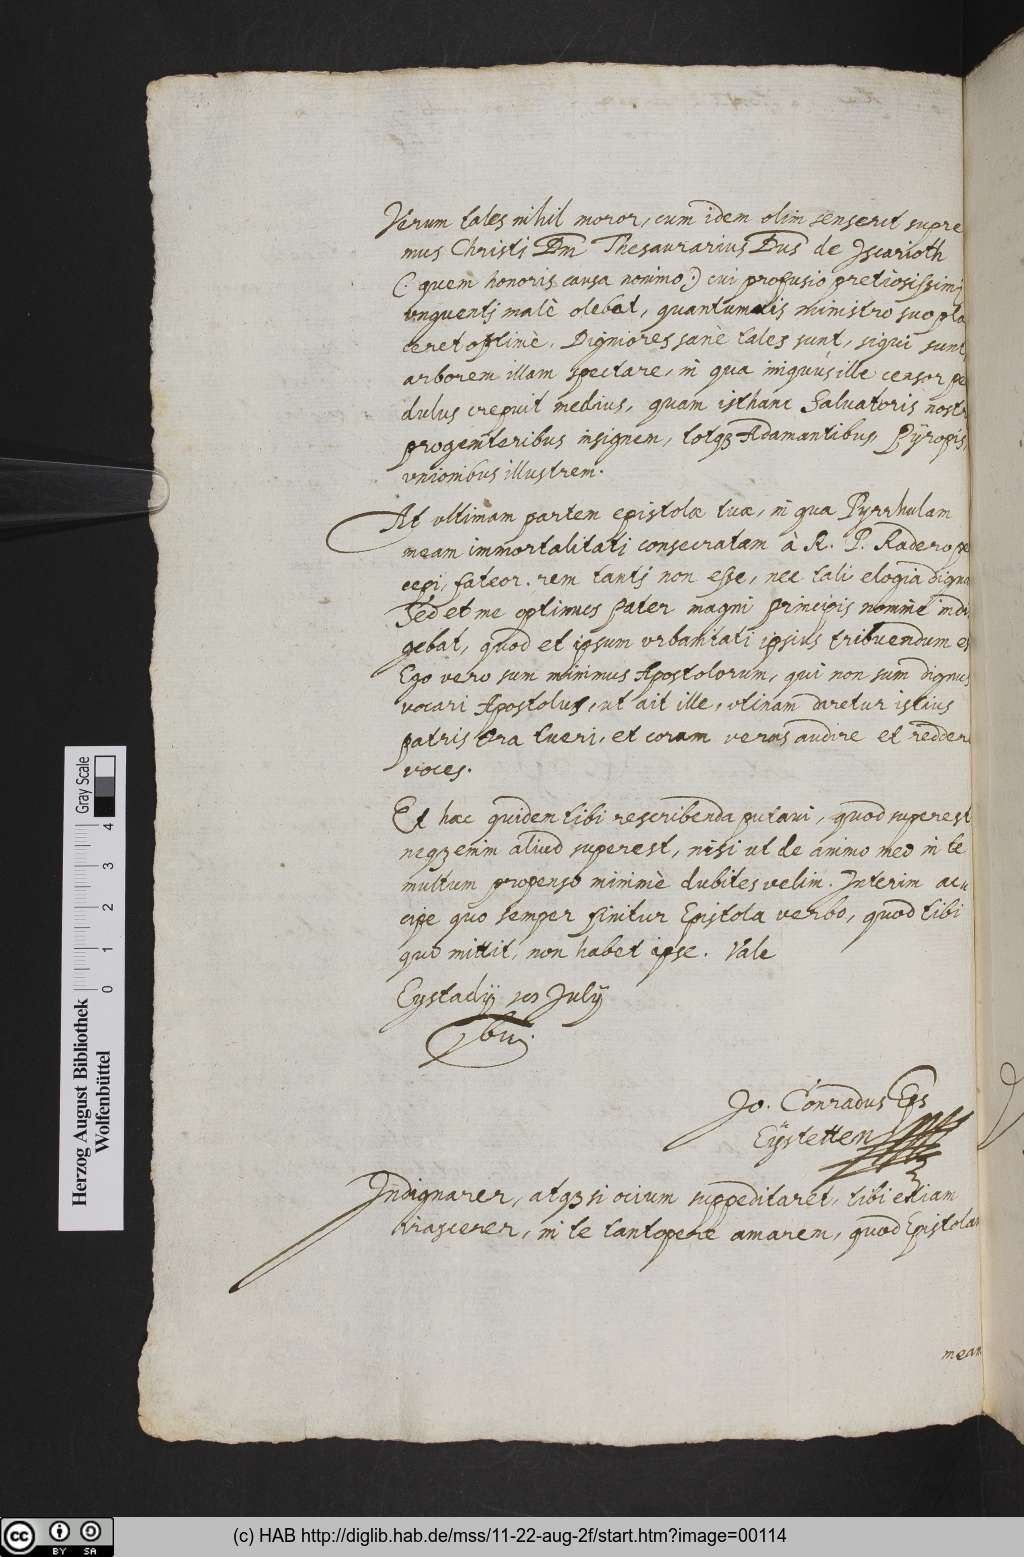 Verum tales nihil moror, cum idem olim senserit supre
mus Christi Dni Thesaurarius Dus de Iscarioth
(: quem honoris causa nomino :) cui profusio pretiosissimi
unguenti malè olebat, quantumuis ministro suo pla
ceret optimè. Digniores sanè tales sunt, siqui sunt,
arborem illam spectare, in qua iniquus ille censor pe
dulus crepuit medius, quam isthanc Salvatoris nostri
progenitoribus insignem, totqz Adamantibus, Pÿropis,
vnionibus illustrem.
At ultimam partem epistolæ tuæ, in qua Pyrrhulam
meam immortalitati consecratam à R. P. Radero per
cepi, fateor. rem tanti non esse, nec tali elogia digna
Sed et me optimus pater magni principis nomine indi
gebat, quod et ipsum urbanitati ipsius tribuendum est
Ego vero sum minimus Apostolorum, qui non sum dignus
vocari Apostolus, ut ait ille, utinam daretur istius
patris ora tueri, et coram veras audire et reddere
voces.
Et hæc quidem tibi rescribenda putaui, quod superest
neqz enim aliud superest, nisi ut de animo meo in te
multum propenso minimè dubites velim. Interim ac
cipe quo semper finitur Epistola verbo, quod tibi
qui mittit, non habet ipse. Vale
Eystadij 10 Julÿ
Jo. Conradus Eps
Eÿstetten
Indignarer, atqz si ocium suppeditaret, tibi etiam
irascerer, ni te tantopere amarem, quod Epistolam
meam
Herzog August Bibliothek
Wolfenbüttel
0 1 2 3 4
Gray Scale
cc BY SA
(c) HAB http://diglib.hab.de/mss/11-22-aug-2f/start.htm?image=00114